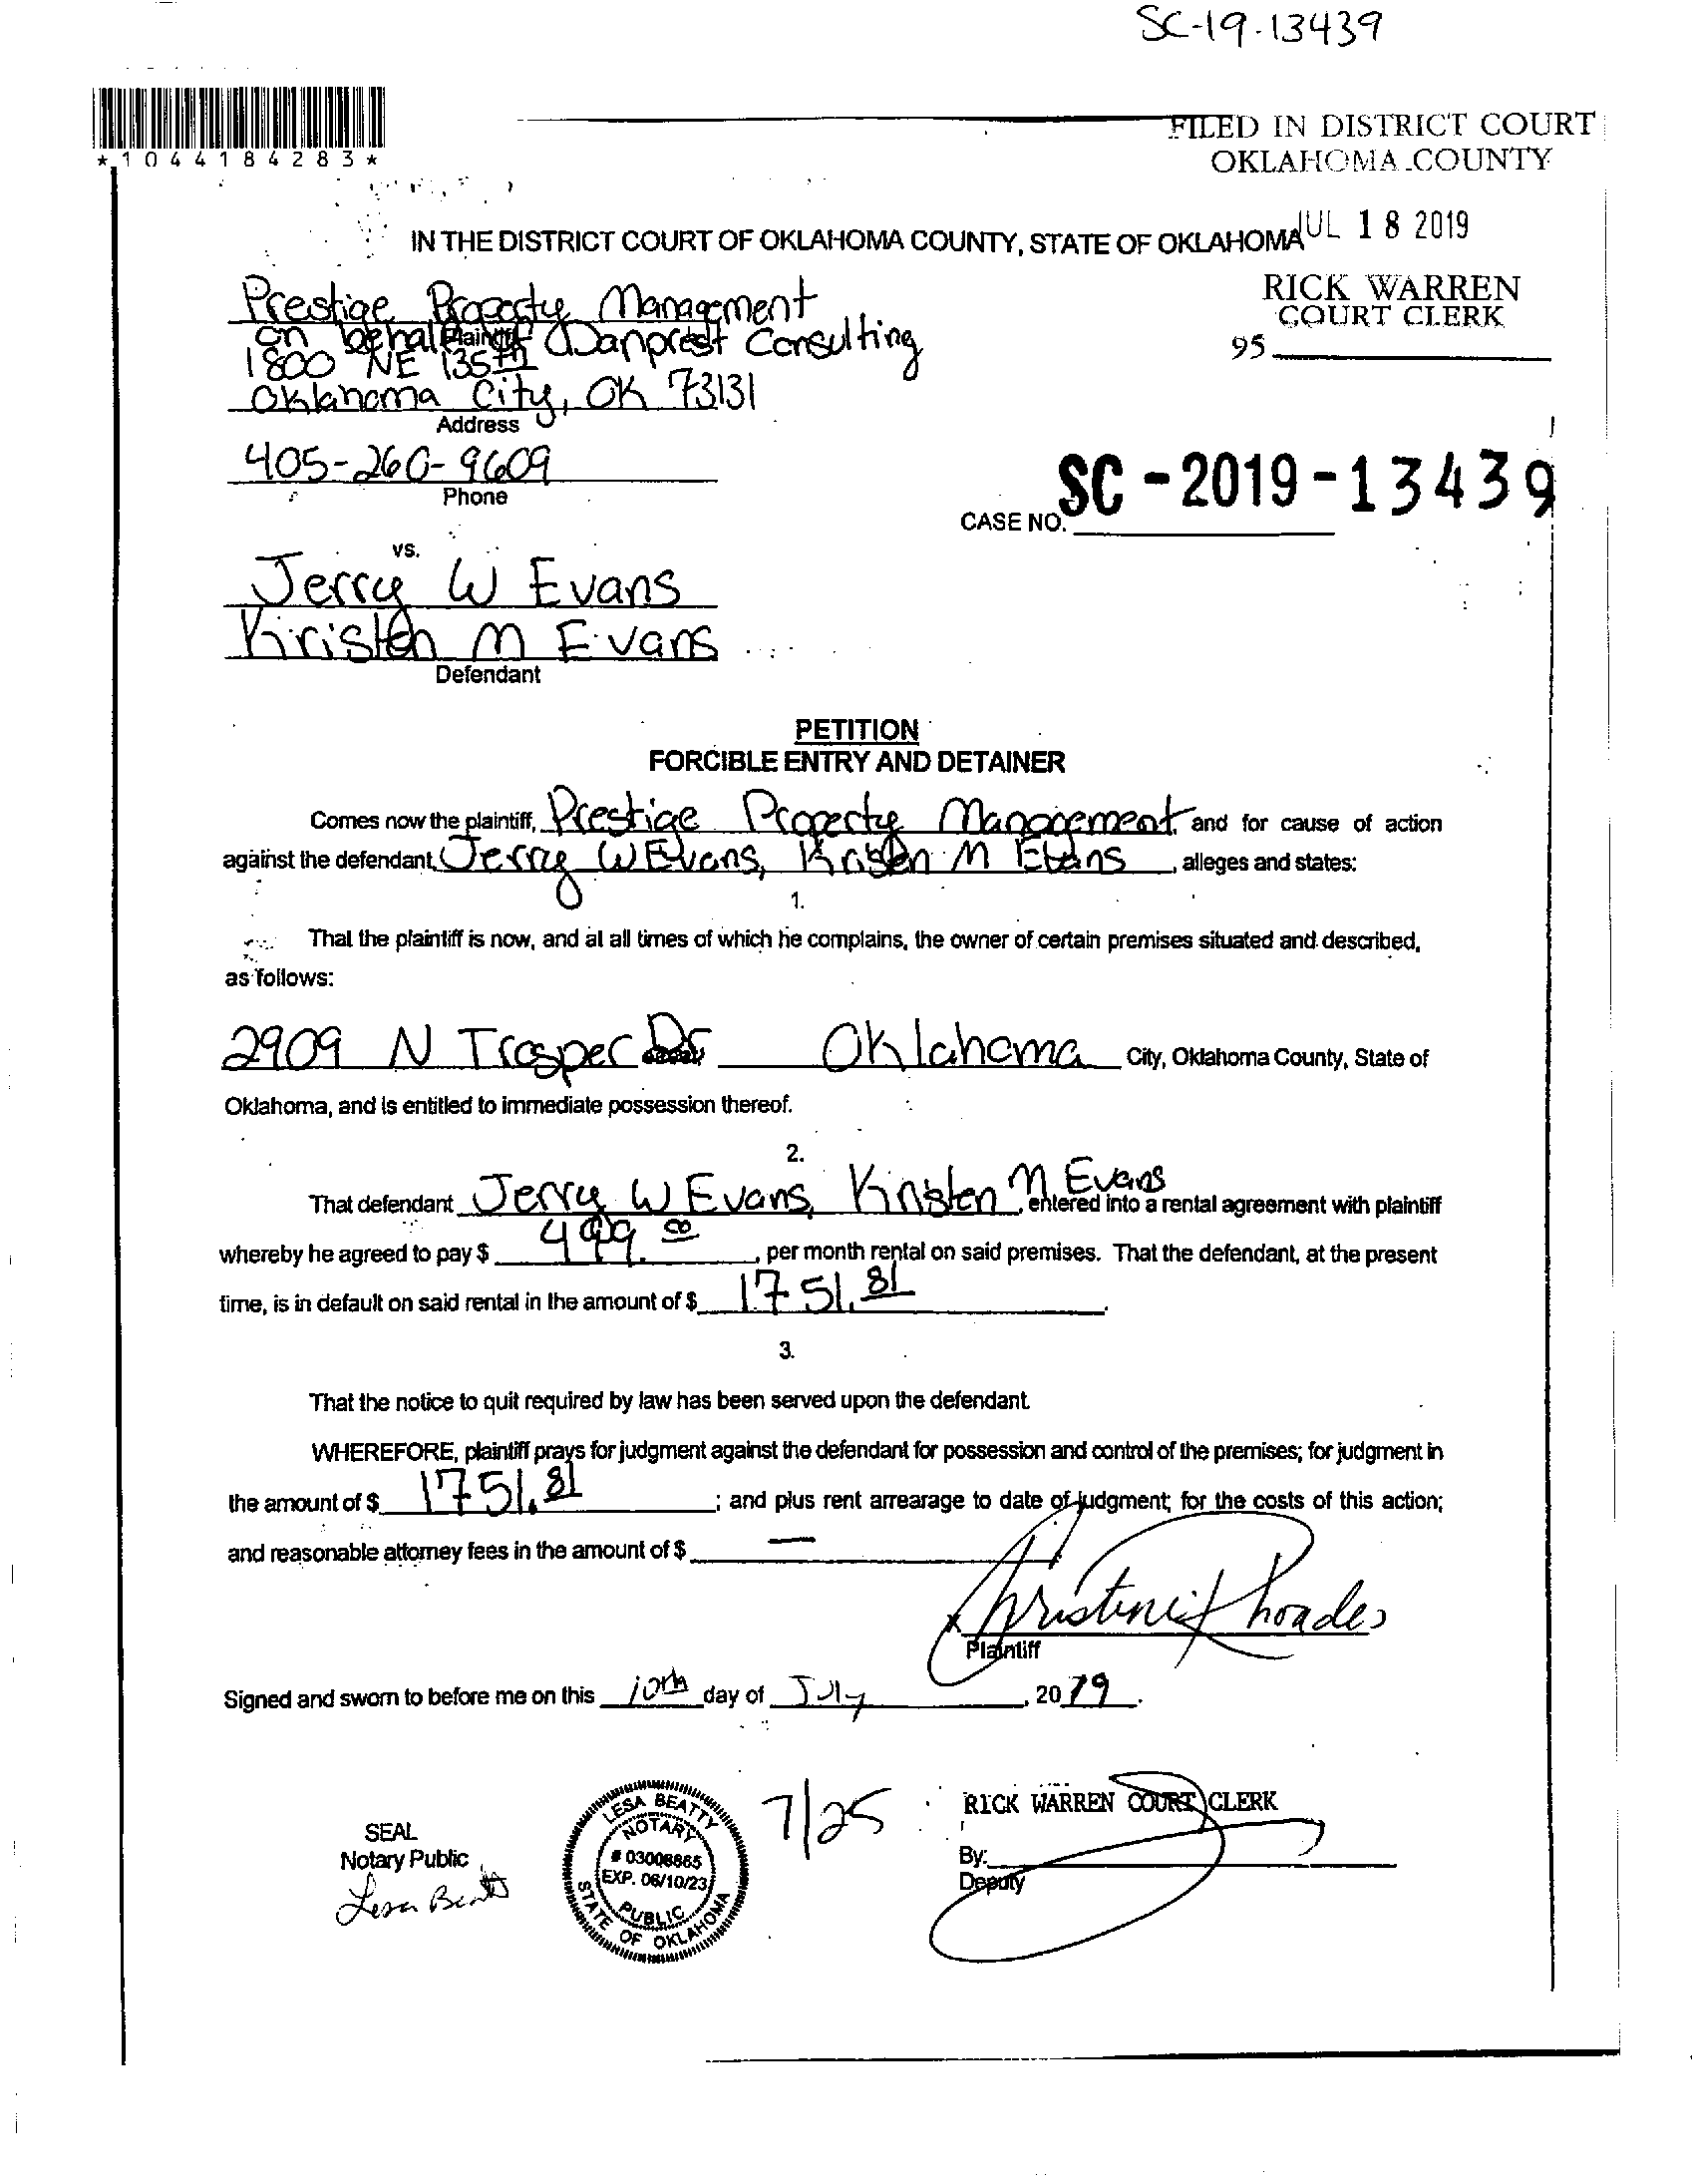 SC-19-13439
*1044184283*
FILED IN DISTRICT COURT
OKLAHOMA COUNTY
JUL 18 2019
IN THE DISTRICT COURT OF OKLAHOMA COUNTY, STATE OF OKLAHOMA
RICK WARREN
COURT CLERK
95
Prestige Property Management
on behalf of Danprest Consulting
Plaintiff
1800 NE 135th
Oklahoma City, OK 73131
Address
405-260-9609
Phone
SC-2019-13439
CASE NO.
vs.
Jerry W Evans
Kristen M Evans
Defendant
PETITION
FORCIBLE ENTRY AND DETAINER
Comes now the plaintiff, Prestige Property Management and for cause of action
against the defendant, Jerry W Evans, Kristen M Evans, alleges and states:
1.
That the plaintiff is now, and at all times of which he complains, the owner of certain premises situated and described,
as follows:
2909 N Trosper Dr Oklahoma City, Oklahoma County, State of
Oklahoma, and is entitled to immediate possession thereof.
2.
That defendant Jerry W Evans, Kristen M Evans, entered into a rental agreement with plaintiff
whereby he agreed to pay $ 499.00, per month rental on said premises. That the defendant, at the present
time, is in default on said rental in the amount of $ 1751.81.
3.
That the notice to quit required by law has been served upon the defendant.
WHEREFORE, plaintiff prays for judgment against the defendant for possession and control of the premises; for judgment in
the amount of $ 1751.81; and plus rent arrearage to date of judgment; for the costs of this action;
and reasonable attorney fees in the amount of $ —
x Christine Rhoades
Plaintiff
Signed and sworn to before me on this 10th day of July, 2019.
SEAL
Notary Public
Lesa Beatty
LESA BEATTY
NOTARY
# 03008865
EXP. 06/10/23
PUBLIC
STATE OF OKLAHOMA
7/25
RICK WARREN COURT CLERK
By:
Deputy